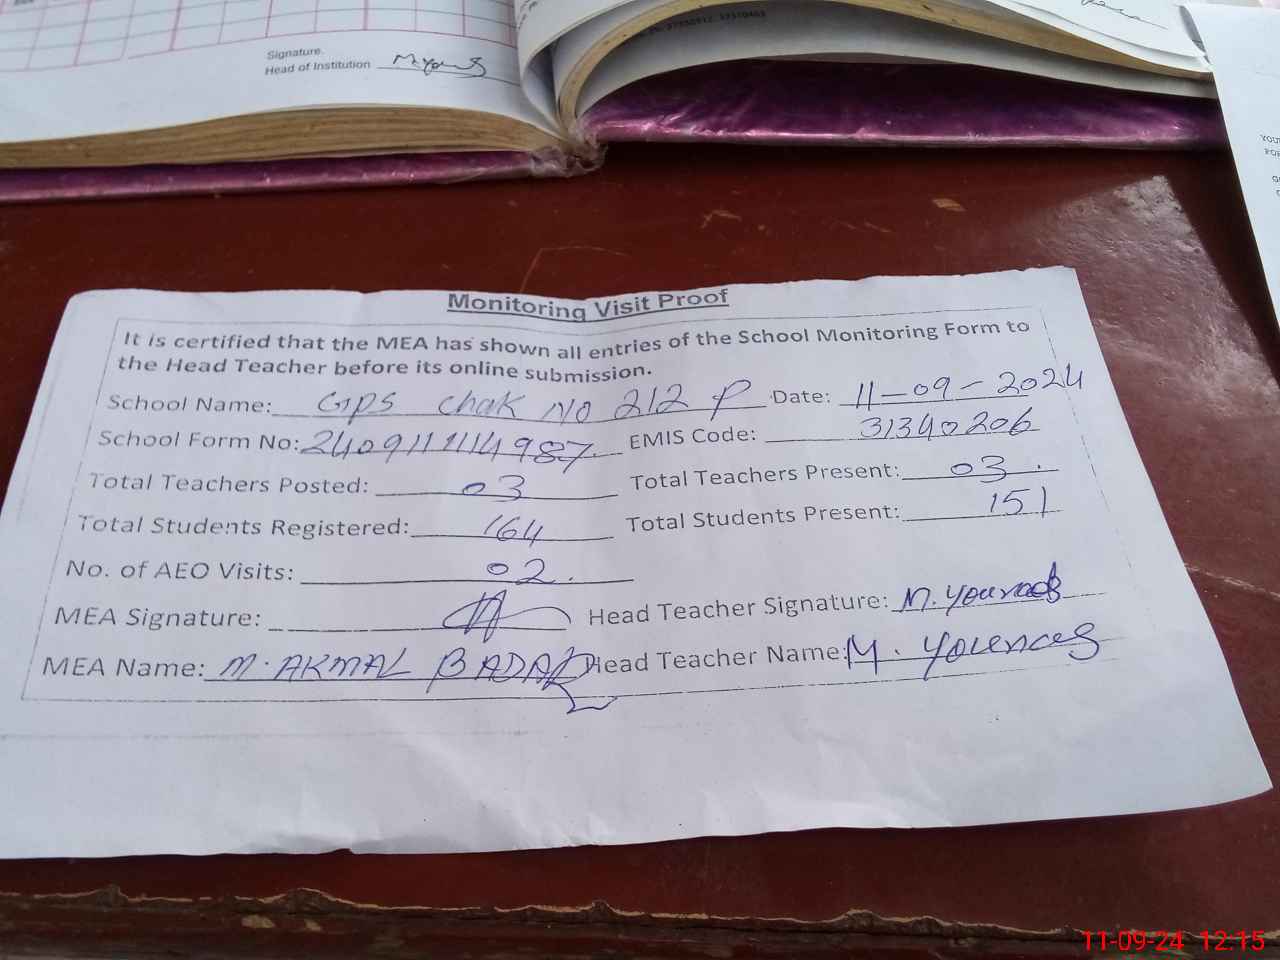 Signature.
Head of Institution M. Youn
37330912, 37310463
YOU
FOR
Monitoring Visit Proof
It is certified that the MEA has shown all entries of the School Monitoring Form to
the Head Teacher before its online submission.
School Name: GPS Chak NO 212 P Date: 11-09-2024
School Form No: 2409111114987 EMIS Code: 31340206
Total Teachers Posted: 03 Total Teachers Present: 03.
Total Students Registered: 164 Total Students Present: 151
No. of AEO Visits: 02.
MEA Signature: Head Teacher Signature: M. Younas
MEA Name: M. AKMAL BADAR Head Teacher Name: M. Younas
11-09-24 12:15